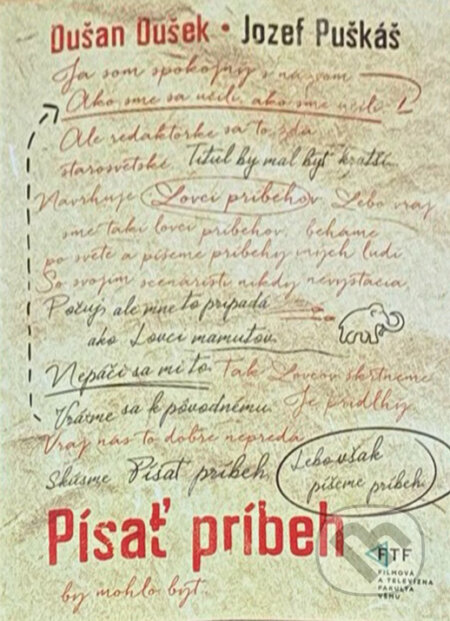 Dušan Dušek • Jozef Puškáš
Ja som spokojný s názvom
Ako sme sa učili, ako sme učili!
Ale redaktorke sa to zdá
starosvetské. Titul by mal byť kratší.
Navrhuje Lovci príbehov. Lebo vraj
sme takí lovci príbehov, beháme
po svete a píšeme príbehy iných ľudí.
So svojím scenáristi nikdy nevystačia.
Počuj, ale mne to pripadá
ako Lovci mamutov.
Nepáči sa mi to. Tak Lovcov škrtneme.
Vráťme sa k pôvodnému. Je pridlhý.
Vraj nás to dobre nepredá.
Skúsme Písať príbeh.
Lebo však
píšeme príbeh.
Písať príbeh
by mohlo byť.
FTF
FILMOVÁ
A TELEVÍZNA
FAKULTA
VŠMU
m